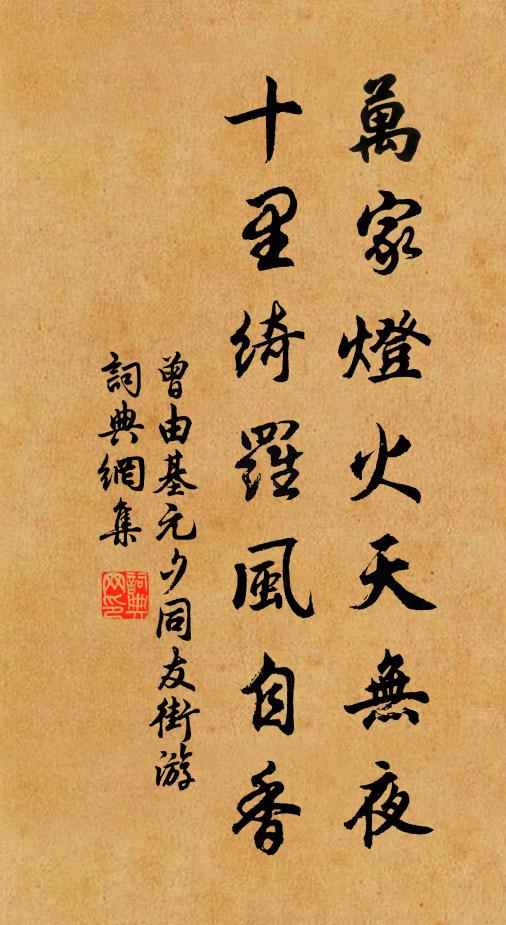 萬家燈火天無夜
十里綺羅風自香
曾由基元夕同友街游
詞典網集
詞典网印